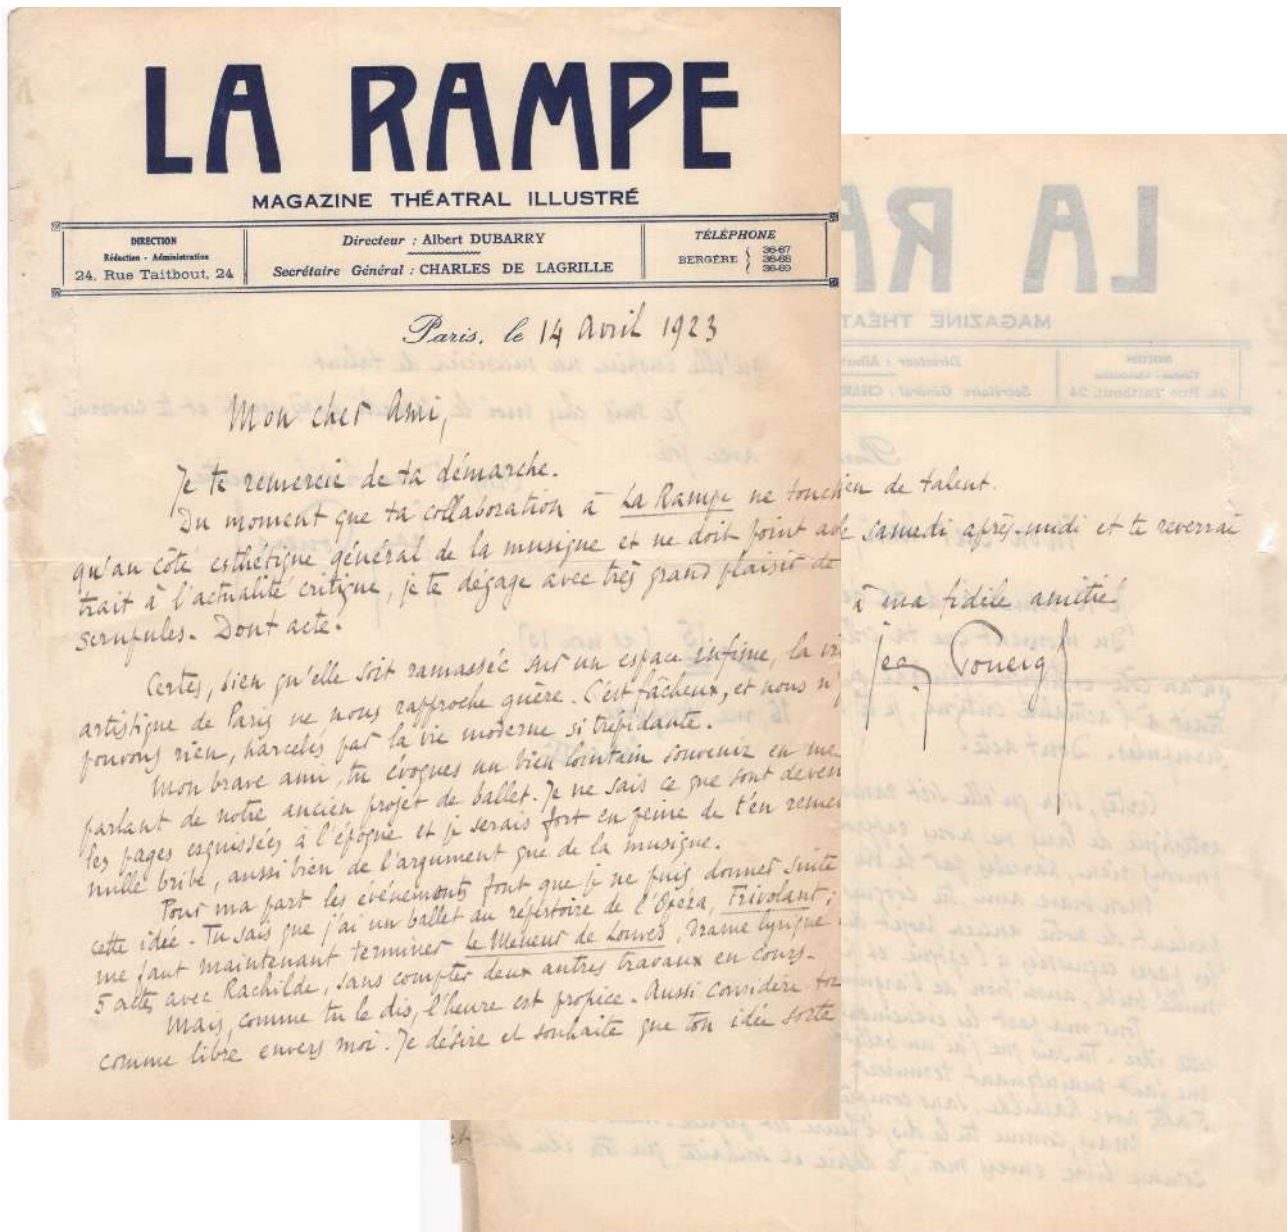 LA RAMPE
MAGAZINE THÉATRAL ILLUSTRÉ
DIRECTION
Rédaction - Administration
24, Rue Taitbout, 24
Directeur : Albert DUBARRY
Secrétaire Général : CHARLES DE LAGRILLE
TÉLÉPHONE
BERGÈRE { 36-67
36-68
36-69
Paris, le 14 Avril 1923
Mon cher Ami,
Je te remercie de ta démarche.
Du moment que ta collaboration à La Rampe ne touch
qu'au côté esthétique général de la musique et ne doit point
trait à l'actualité critique, je te dégage avec très grand plaisir de
scrupules. Dont acte.
Certes, bien qu'elle soit ramassée sur un espace infime, la vi
artistique de Paris ne nous rapproche guère. C'est fâcheux, et nous n'y
pouvons rien, harcelés par la vie moderne si trépidante.
Mon brave ami, tu évoques un bien lointain souvenir en me
parlant de notre ancien projet de ballet. Je ne sais ce que sont deven
les pages esquissées à l'époque et je serais fort en peine de t'en remet
nulle bribe, aussi bien de l'argument que de la musique.
Pour ma part les événements font que je ne puis donner suite
cette idée. Tu sais que j'ai un ballet au répertoire de l'Opéra, Frivolant ;
me faut maintenant terminer Le Meneur de Louves, drame lyrique
5 actes avec Rachilde, sans compter deux autres travaux en cours.
Mais, comme tu le dis, l'heure est propice. Aussi considère to
comme libre envers moi. Je désire et souhaite que ton idée sorte
LA RA
MAGAZINE THÉAT
ien de talent.
samedi après-midi et te reverrai
à ma fidèle amitié
Jean Poueigh